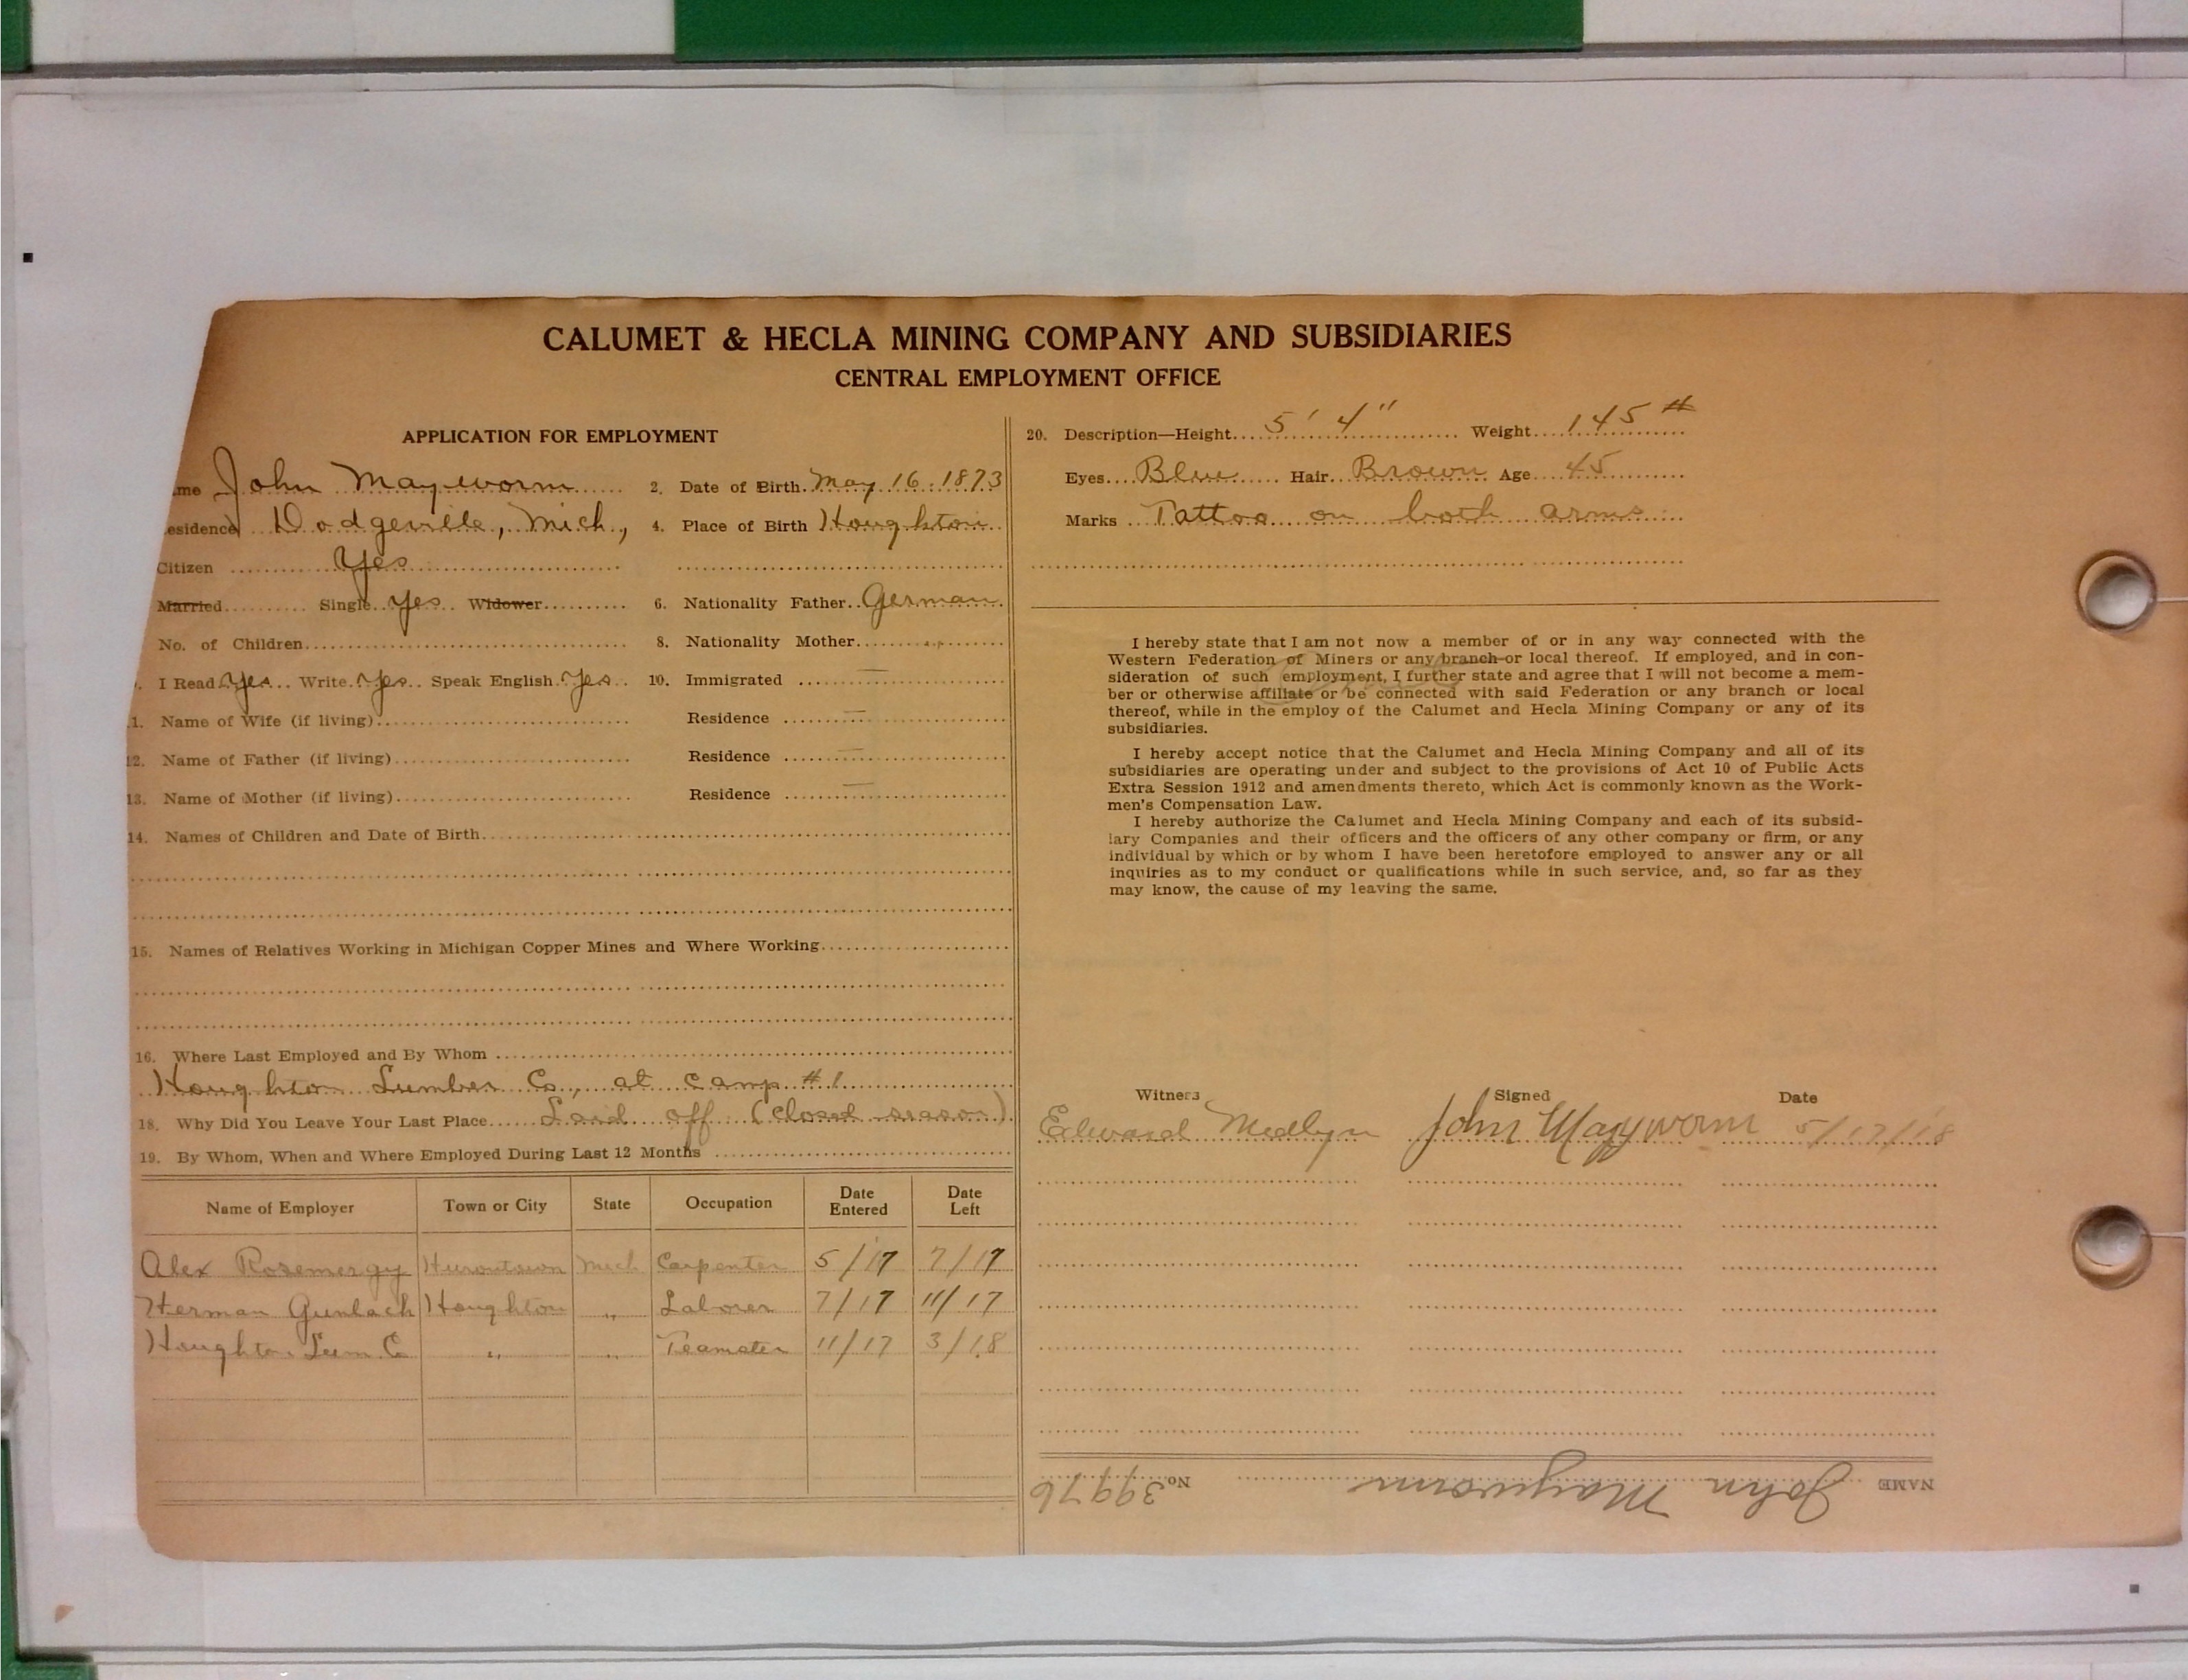 CALUMET & HECLA MINING COMPANY AND SUBSIDIARIES
CENTRAL EMPLOYMENT OFFICE
APPLICATION FOR EMPLOYMENT
me John Mayworm 2. Date of Birth May 16 1873
esidence Dodgeville, Mich., 4. Place of Birth Houghton
Citizen Yes
Married Single Yes Widower 6. Nationality Father German
No. of Children 8. Nationality Mother "
I Read Yes Write Yes Speak English Yes 10. Immigrated —
1. Name of Wife (if living) Residence —
12. Name of Father (if living) Residence —
13. Name of Mother (if living) Residence —
14. Names of Children and Date of Birth
15. Names of Relatives Working in Michigan Copper Mines and Where Working
16. Where Last Employed and By Whom
Houghton Lumber Co., at camp #1
18. Why Did You Leave Your Last Place Laid off (closed season)
19. By Whom, When and Where Employed During Last 12 Months
Name of Employer Town or City State Occupation Date Entered Date Left
Alex Rosemergy Hurontown Mich Carpenter 5/17 7/17
Herman Gunlach Houghton " Laborer 7/17 11/17
Houghton Lum. Co " " Teamster 11/17 3/18
20. Description—Height 5' 4" Weight 145 #
Eyes Blue Hair Brown Age 45
Marks Tattoo on both arms
I hereby state that I am not now a member of or in any way connected with the
Western Federation of Miners or any branch or local thereof. If employed, and in con-
sideration of such employment, I further state and agree that I will not become a mem-
ber or otherwise affiliate or be connected with said Federation or any branch or local
thereof, while in the employ of the Calumet and Hecla Mining Company or any of its
subsidiaries.
I hereby accept notice that the Calumet and Hecla Mining Company and all of its
subsidiaries are operating under and subject to the provisions of Act 10 of Public Acts
Extra Session 1912 and amendments thereto, which Act is commonly known as the Work-
men's Compensation Law.
I hereby authorize the Calumet and Hecla Mining Company and each of its subsid-
iary Companies and their officers and the officers of any other company or firm, or any
individual by which or by whom I have been heretofore employed to answer any or all
inquiries as to my conduct or qualifications while in such service, and, so far as they
may know, the cause of my leaving the same.
Witness Signed Date
Edward Medlyn John Mayworm 5/17/18
NAME John Mayworm No. 39976